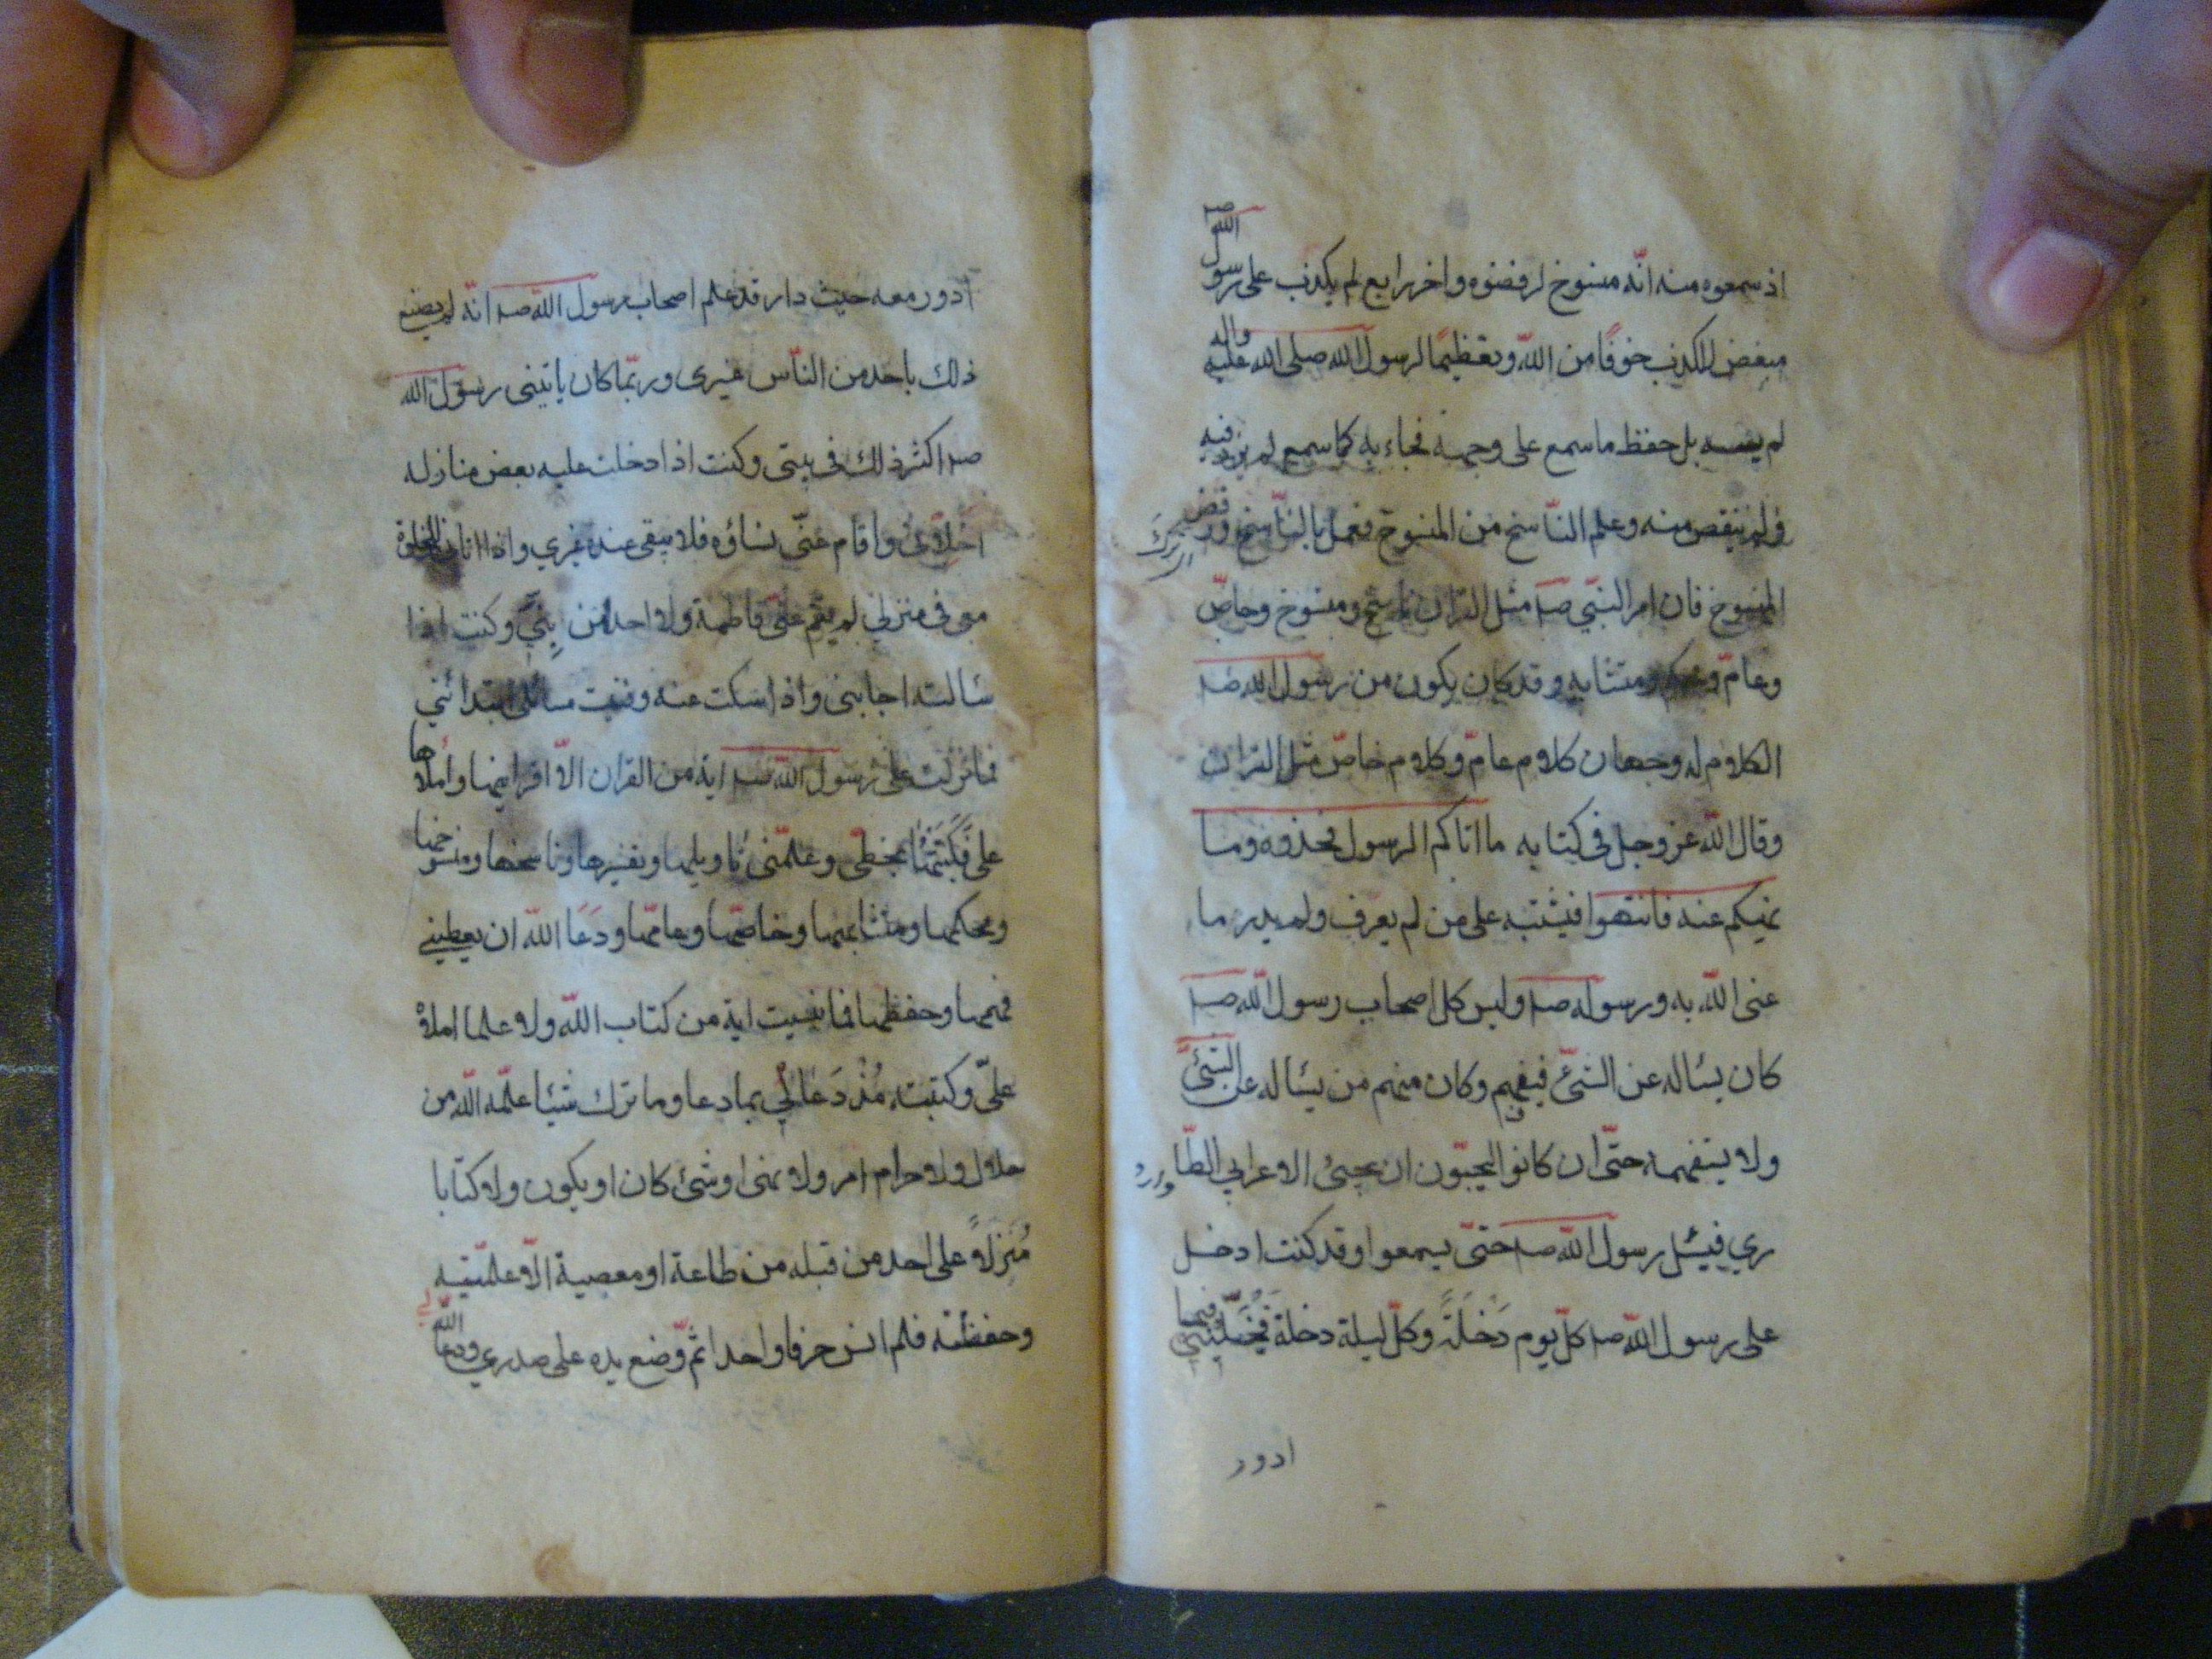 اذ سمعوه منه انّه منسوخ لرفضوه واخر رابع لم يكذب على رسول الله صـ
مبغض للكذب خوفًا من الله وتعظيمًا لرسول الله صلى الله عليه واله
لم ينسه بل حفظ ما سمع على وجهه فجاء به كما سمع لم يزد فيه
ولم ينقص منه وعلم النّاسخ من المنسوخ فعمل بالنّاسخ ورفض
المنسوخ فان امر النبّي صـ مثل القران ناسخ ومنسوخ وخاصّ
وعامّ ومحكم ومتشابه وقد كان يكون من رسول الله صـ
الكلام له وجهان كلام عامّ وكلام خاصّ مثل القران
وقال الله عز وجل في كتابه ما اتاكم الرسول فخذوه وما
نهيكم عنه فانتهوا فيشتبه على من لم يعرف ولم يدر ما
عنى الله به ورسوله صـ وليس كل اصحاب رسول الله صـ
كان يسئاله عن الشئ فيفهم وكان منهم من يسئاله عن الشئ
ولا يستفهمه حتّى ان كانوا ليحبّون ان يجيئ الاعرابي الطّا
ري فيسئل رسول الله صـ حتى يسمعوا وقد كنت ادخل
على رسول الله صـ كلّ يوم دَخلَةً وكلّ ليلة دخلة فَيُخَلّيني فيها
ادور
ادور معه حيث دار قد علم اصحاب رسول الله صـ انّه لم يصنع
ذلك باحد من النّاس غيري وربّما كان ياتيني رسول الله
صـ اكثر ذلك في بيتي وكنت اذا دخلت عليه بعض منازله
اخلاني واقام عنّي نساؤه فلا يبقى عنده غيري واذا اتاني للخلوة
معي في منزلي لم يقم عنّي فاطمة ولا احد من بنيّ وكنت اذا
سئالته اجابني واذا سكت عنه وفنيت مسائلي ابتدائني
فما نزلت على رسول الله صـ اية من القران الاّ اقرانيها واملاها
على فكتبتها بخطّي وعلمّني تاويلها وتفسيرها وناسخها ومنسوخها
ومحكمها ومتشابهها وخاصّها وعامّها ودَعَا الله ان يعطيني
فهمها وحفظها فما نسيت اية من كتاب الله ولا علما املاه
علىّ وكتبته مُنْذ دَعَا لي بما دعا وما ترك شيئا علّمه الله من
حلال ولا حرام امر ولا نهى او شئ كان او يكون ولا كتابا
مُنزلاً على احد من قبله من طاعة او معصية الاّ علمّنيه
وحفظته فلم انس حرفا واحدا ثمّ وضع يده على صدري ودعا الله لي